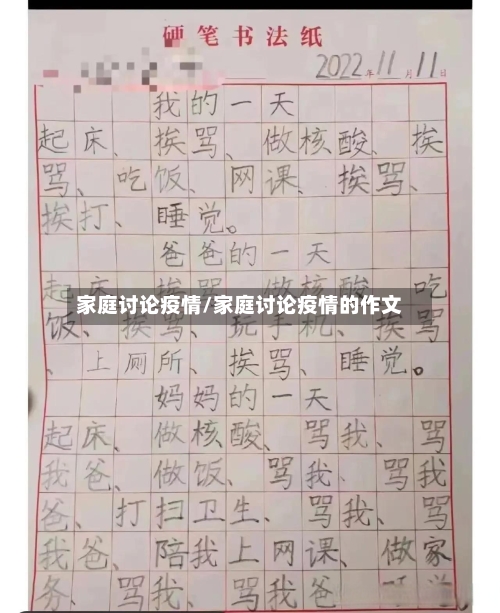 硬笔书法纸
2022年11月11日
我的一天
起床、挨骂、做核酸、挨
骂、吃饭、网课、挨骂、
挨打、睡觉。
爸爸的一天
起床、挨骂、做核酸、吃
家庭讨论疫情/家庭讨论疫情的作文
饭、挨骂、玩手机、挨骂
、上厕所、挨骂、睡觉。
妈妈的一天
起床、做核酸、骂我、骂
我爸、做饭、骂我、骂我
爸、打扫卫生、骂我、骂
我爸、陪我上网课、做家
务、骂我、骂我爸